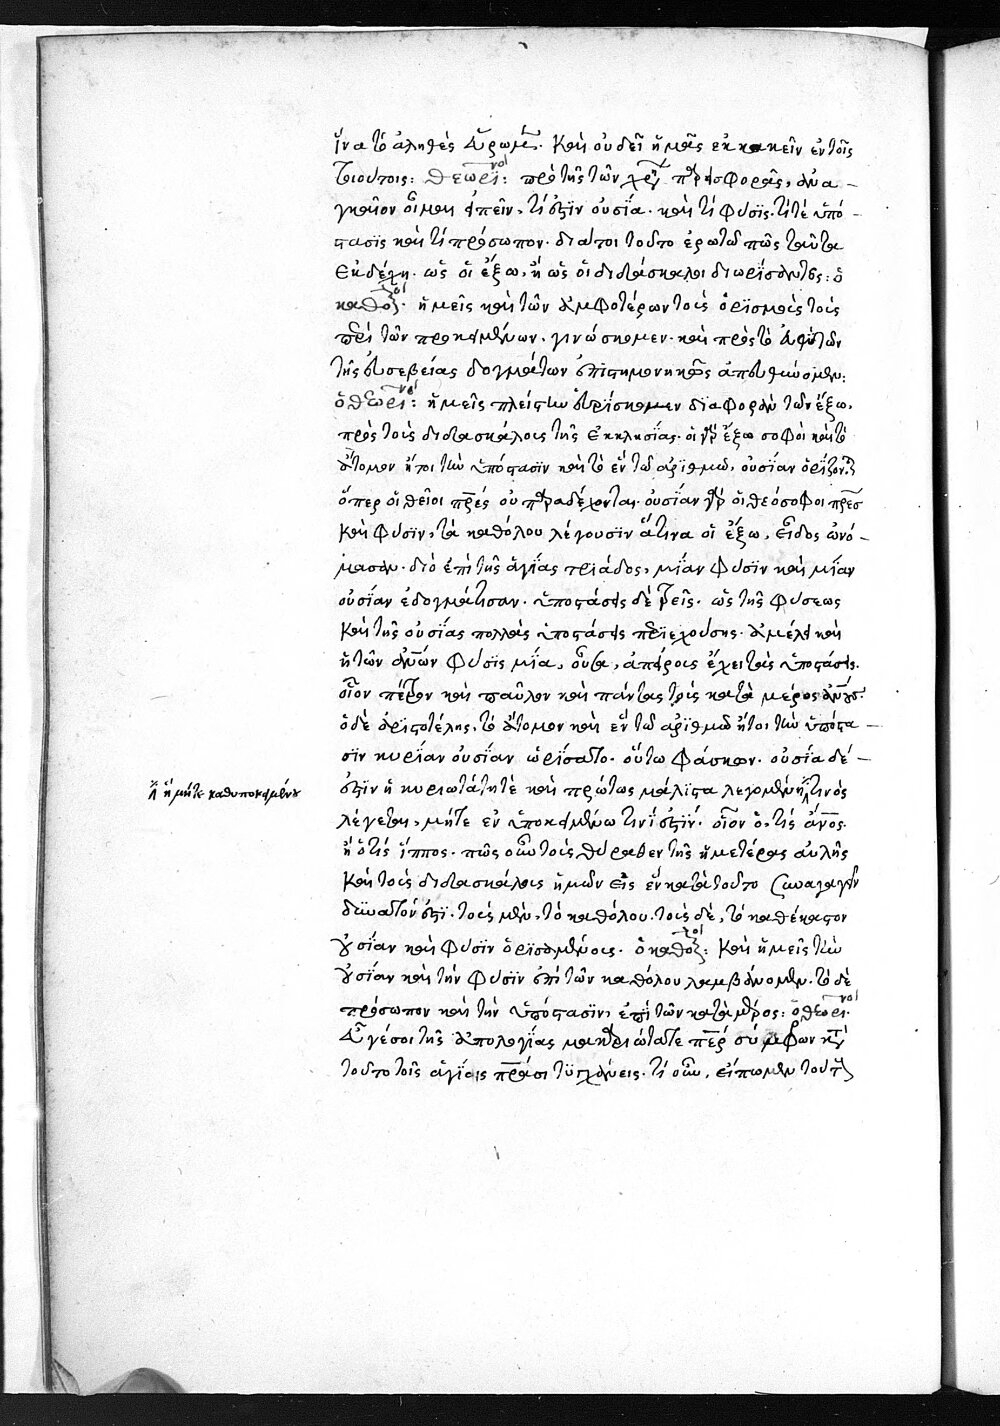 ἵνα τὸ ἀληθὲς εὕρωμεν. καὶ οὐ δεῖ ἡμᾶς ἐκκακεῖν ἐν τοῖς
τοιούτοις: θεωρια νοῖ: πρὸ τῆς τῶν χρήσεων προσφορᾶς, ἀνα-
γκαῖον οἶμαι εἰπεῖν, τί ἐστιν οὐσία. καὶ τί φύσις. τί τε ὑπό-
στασις καὶ τί πρόσωπον. διά τοι τοῦτο ἐρωτῶ πῶς ταῦτα
ἐκδέχῃ. ὡς οἱ ἔξω, ἢ ὡς οἱ διδάσκαλοι διωρίσαντο: ὁ
καθολ. ἡμεῖς καὶ τῶν ἀμφοτέρων τοὺς ὁρισμοὺς τοὺς
περὶ τῶν προκειμένων, γινώσκομεν. καὶ πρὸς τὸ
τῆς εὐσεβείας δογμάτων ἐπιστημονικῶς ἀπευθύνομεν:
ὁ θεωρι: ἡμεῖς πλείστην εὑρίσκομεν διαφορὰν τῶν ἔξω,
πρὸς τοὺς διδασκάλους τῆς ἐκκλησίας. οἱ γὰρ ἔξω σοφοὶ καὶ τὸ
ἄτομον ἤτοι τὴν ὑπόστασιν καὶ τὸ ἓν τῷ ἀριθμῷ, οὐσίαν ὁρίζονται
ὅπερ οἱ θεῖοι πρες οὐ παραδέχονται. οὐσίαν γὰρ οἱ θεόσοφοι πρες
καὶ φύσιν, τὰ καθόλου λέγουσιν ἅτινα οἱ ἔξω, εἶδος ὠνό-
μασαν. διὸ ἐπὶ τῆς ἁγίας τριάδος, μίαν φύσιν καὶ μίαν
οὐσίαν ἐδογμάτισαν. ὑποστάσεις δὲ τρεῖς. ὡς τῆς φύσεως
καὶ τῆς οὐσίας πολλὰς ὑποστάσεις περιεχούσης. ἀμέλει καὶ
ἡ τῶν ἀνων φύσις μία, οὖσα, ἀπείρους ἔχει τὰς ὑποστάσεις.
οἷον πέτρον καὶ παῦλον καὶ πάντας τοὺς κατὰ μέρος ἀνους.
ὁ δὲ ἀριστοτέλης, τὸ ἄτομον καὶ ἓν τῷ ἀριθμῷ ἤτοι τὴν ὑπόστα-
σιν κυρίαν οὐσίαν ὡρίσατο. οὕτω φάσκων. οὐσία δέ
ἐστιν ἡ κυριωτάτη τε καὶ πρώτως μάλιστα λεγομένη
ἢ ἡ μήτε καθ' ὑποκειμένου
τινὸς
λέγεται, μήτε ἐν ὑποκειμένω τινί ἐστιν. οἷον ὅ, τις ἀνος.
ἢ ὅ τις ἵππος. πῶς οὖν τοὺς θύραθεν τῆς ἡμετέρας αὐλῆς
καὶ τοὺς διδασκάλους ἡμῶν εἰς ἓν κατὰ τοῦτο συναγαγεῖν
δυνατόν ἐστι. τοὺς μὲν, τὸ καθόλου. τοὺς δὲ, τὸ καθέκαστον
οὐσίαν καὶ φύσιν ὁρισαμένους. ὁ καθολ: καὶ ἡμεῖς τὴν
οὐσίαν καὶ τὴν φύσιν ἐπὶ τῶν καθόλου λαμβάνομεν. τὸ δὲ
πρόσωπον καὶ τὴν ὑπόστασιν, ἐπὶ τῶν κατὰ μέρος: ὁ θεωρι.
εὖγέ σοι τῆς ἀπολογίας μακαριώτατε περ σύμφωνα κατὰ
τοῦτο τοῖς ἁγίοις πράσι τυγχάνεις. τί οὖν, εἴπωμεν